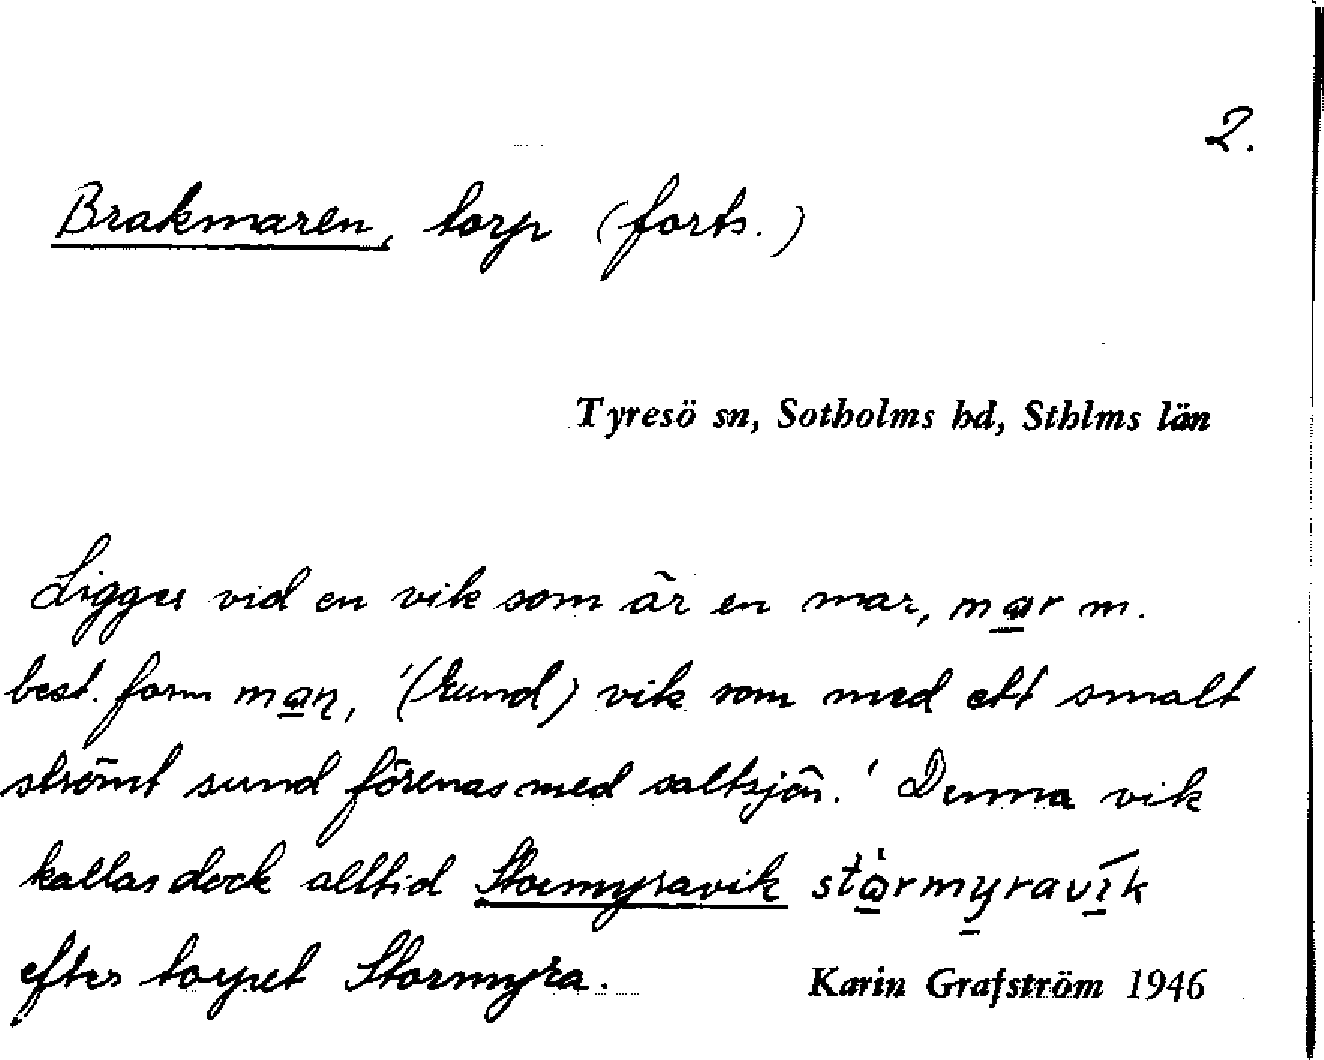 2.
Brakmaren, torp (forts.)
Tyresö sn, Sotholms hd, Sthlms län
Ligger vid en vik som är en mar, mar m.
best. form man, '(Rund) vik som med ett smalt
strömt sund förenas med saltsjön.' Denna vik
kallas dock alltid Stormyravik stormyravik
efter torpet Stormyra.
Karin Grafström 1946